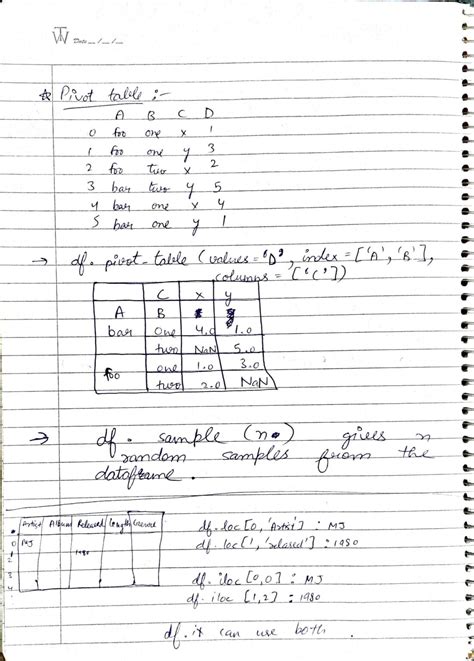 TW Date _/_/_
☆ Pivot table :-
A B C D
0 foo one x 1
1 foo one y 3
2 foo two x 2
3 bar two y 5
4 bar one x 4
5 bar one y 1
→ df. pivot_table (values = 'D', index = ['A', 'B'],
columns = ['C'])
C x y
A B
bar one 4.0 1.0
two NaN 5.0
foo one 1.0 3.0
two 2.0 NaN
→ df. sample (n.) gives n
random samples from the
dataframe.
Artist Album Released Length Genre
0 MJ
1 1980
2
3
4
df.loc [0, 'Artist'] : MJ
df.loc [1, 'released'] : 1980
df. iloc [0,0] : MJ
df. iloc [1,2] : 1980
df.ix can use both.